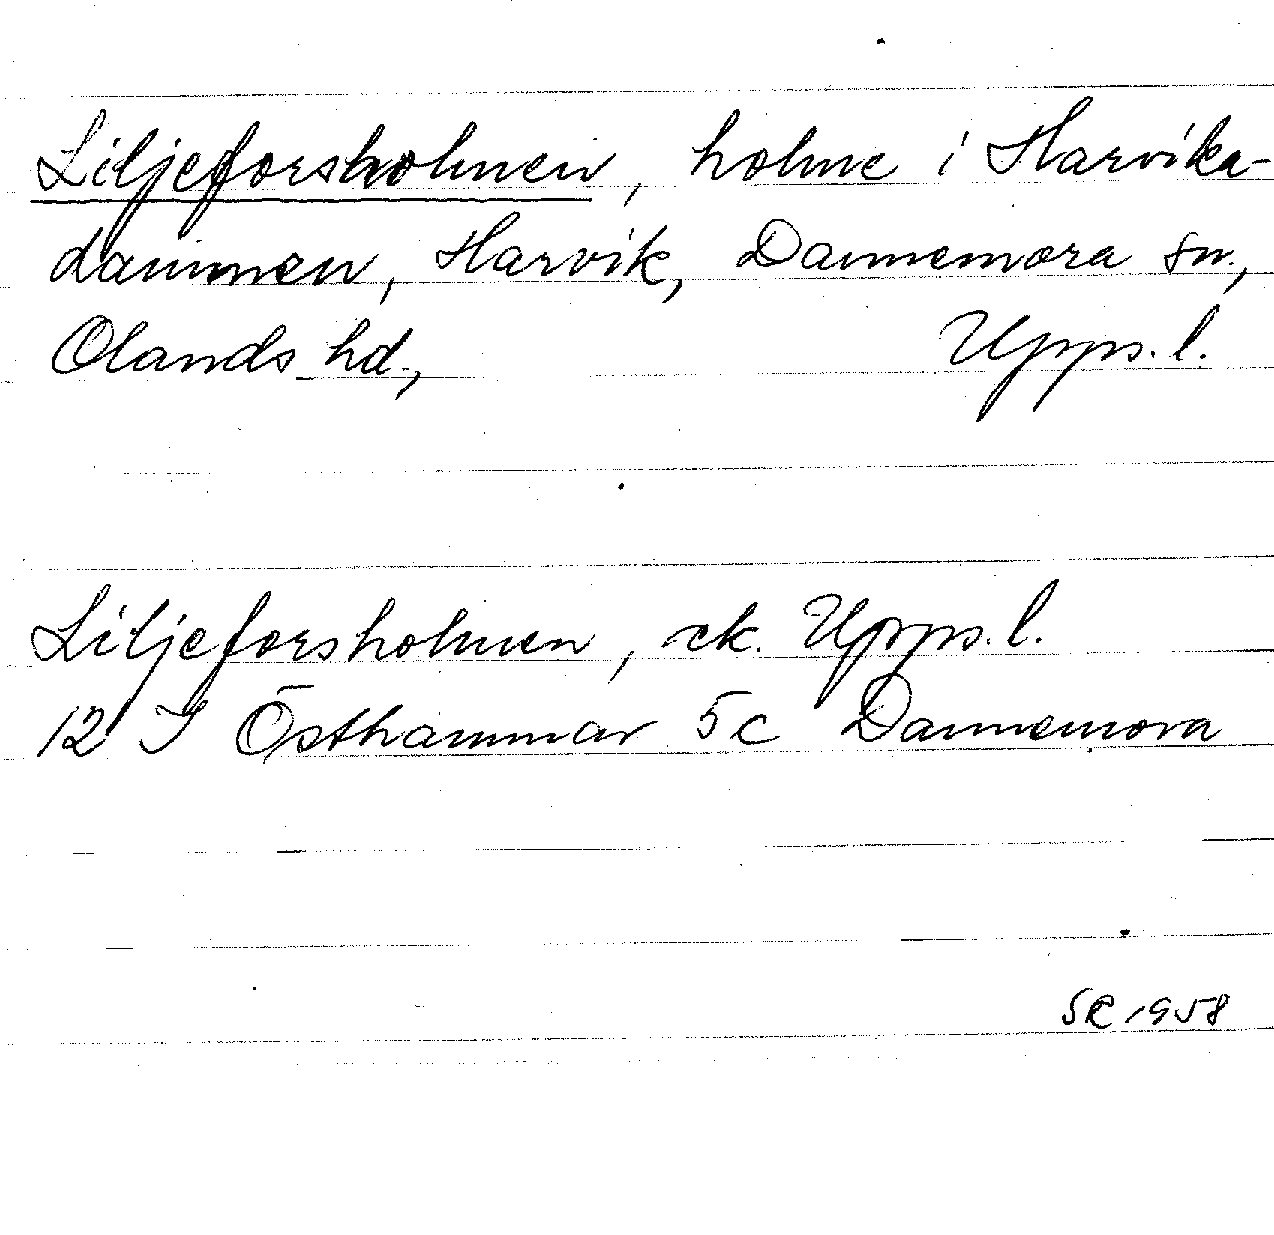 Liljeforsholmen, holme i Harvika-
dammen, Harvik, Dannemora sn.,
Olands hd., Upps. l.
Liljeforsholmen, ek. Upps. l.
12 I Östhammar 5 c Dannemora
SR 1958